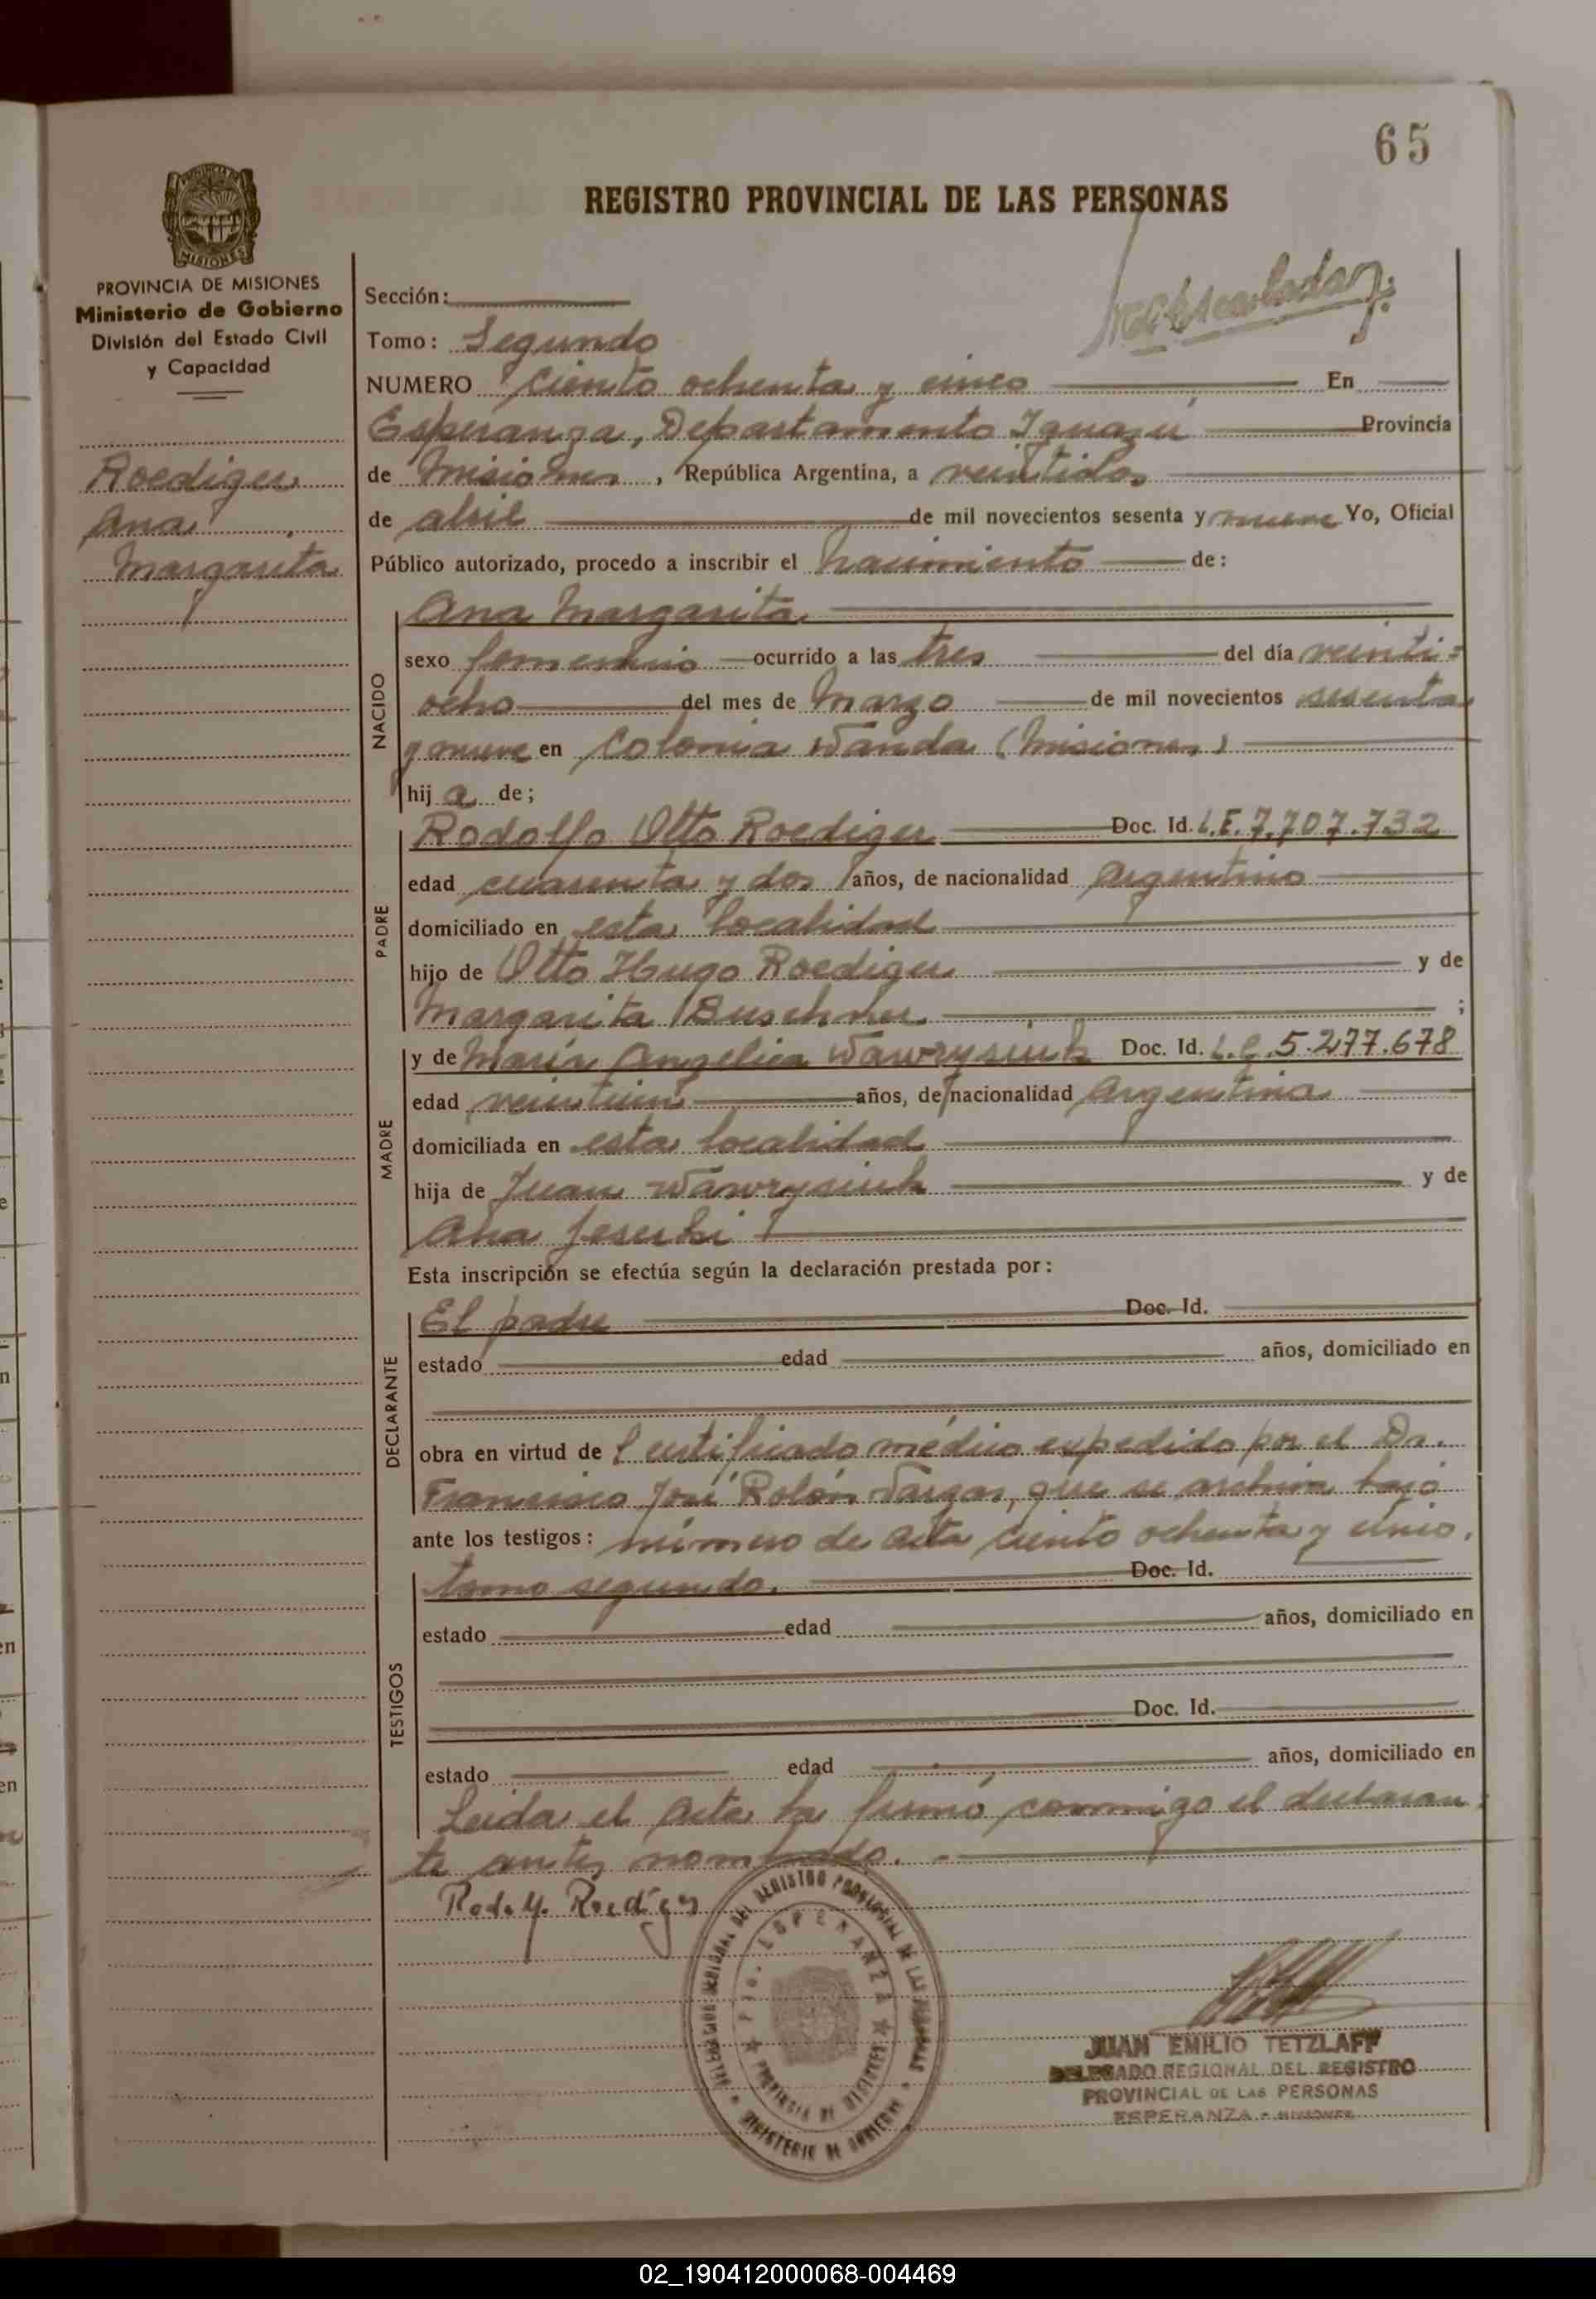 65
REGISTRO PROVINCIAL DE LAS PERSONAS
PROVINCIA DE MISIONES
Ministerio de Gobierno
División del Estado Civil
y Capacidad
Roediger
Ana
Margarita
Sección:
Tomo: Segundo
NUMERO Ciento ochenta y cinco En
Esperanza, Departamento Iguazú Provincia
de Misiones, República Argentina, a veintidos
de abril de mil novecientos sesenta y nueve Yo, Oficial
Público autorizado, procedo a inscribir el nacimiento de:
NACIDO
Ana Margarita
sexo femenino ocurrido a las tres del día veinti=
ocho del mes de Marzo de mil novecientos sesenta
y nueve en Colonia Wanda (Misiones)
hij a de;
PADRE
Rodolfo Otto Roediger Doc. Id. L.E. 7.707.732
edad cuarenta y dos años, de nacionalidad Argentino
domiciliado en esta localidad
hijo de Otto Hugo Roediger y de
Margarita ;
MADRE
y de María Angelica Wawrysiuk Doc. Id. L.C. 5.277.678
edad veintiun años, de nacionalidad Argentina
domiciliada en esta localidad
hija de Juan Wawrysiuk y de
Ana
Esta inscripción se efectúa según la declaración prestada por:
DECLARANTE
El padre Doc. Id.
estado edad años, domiciliado en
obra en virtud de Certificado médico expedido por el Dr.
Francisco José Rolón Vargas, que se archiva bajo
ante los testigos: número de acta ciento ochenta y cinco.
tomo segundo. Doc. Id.
TESTIGOS
estado edad años, domiciliado en
Doc. Id.
estado edad años, domiciliado en
Leida el acta la firmó conmigo el declaran=
te antes nombrado.
Rodolf. Roediger
REGISTRO PROVINCIAL DE LAS PERSONAS
ESPERANZA
PROVINCIA DE MISIONES
MINISTERIO DE GOBIERNO
JUAN EMILIO TETZLAFF
DELEGADO REGIONAL DEL REGISTRO
PROVINCIAL DE LAS PERSONAS
ESPERANZA - MISIONES
02_190412000068-004469